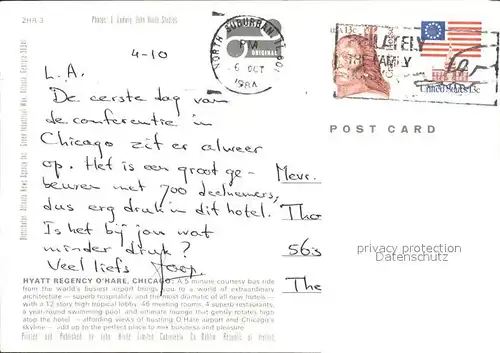 2HR 3
Photos: E. Ludwig, John Hinde Studios
ORIGINAL
NORTH SUBURBAN IL 601
PM
6 OCT
USA 13c
THE FAMILY
United States 13c
POST CARD
4-10
L.A.
De eerste dag van
de conferentie in
Chicago zit er alweer
op. Het is een groot ge-
beuren met 700 deelnemers,
dus erg druk in dit hotel.
Is het bij jou wat
minder druk?
Veel liefs Joop.
Mevr.
Ther
56's
The
privacy protection
Datenschutz
HYATT REGENCY O'HARE, CHICAGO: A 5 minute courtesy bus ride
from the world's busiest airport brings you to a world of extraordinary
architecture — superb hospitality — and the most dramatic of all new hotels —
with a 12 story high tropical lobby, 46 meeting rooms, 4 superb restaurants,
a year-round swimming pool and intimate lounge that gently rotates high
atop the hotel — affording views of bustling O'Hare airport and Chicago's
skyline — add up to the perfect place to mix business and pleasure.
Printed and Published by John Hinde Limited Cabinteely Co Dublin, Republic of Ireland.